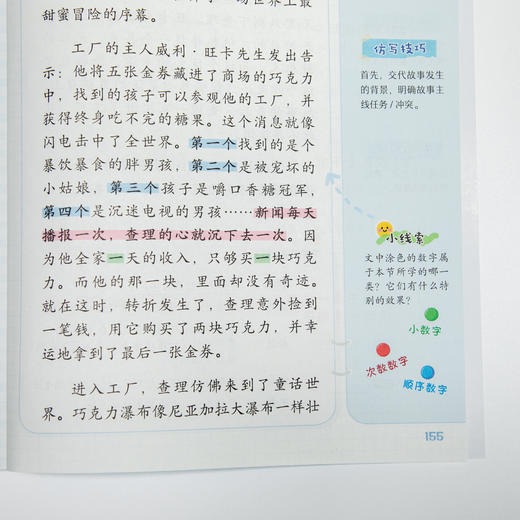 甜蜜冒险的序幕。
工厂的主人威利·旺卡先生发出告
示：他将五张金券藏进了商场的巧克力
中，找到的孩子可以参观他的工厂，并
获得终身吃不完的糖果。这个消息就像
闪电击中了全世界。第一个找到的是个
暴饮暴食的胖男孩，第二个是被宠坏的
小姑娘，第三个孩子是嚼口香糖冠军，
第四个是沉迷电视的男孩……新闻每天
播报一次，查理的心就沉下去一次。因
为他全家一天的收入，只够买一块巧克
力。而他的那一块，里面却没有奇迹。
就在这时，转折发生了，查理意外捡到
一笔钱，用它购买了两块巧克力，并幸
运地拿到了最后一张金券。
进入工厂，查理仿佛来到了童话世
界。巧克力瀑布像尼亚加拉大瀑布一样壮
仿写技巧
首先，交代故事发生
的背景，明确故事主
线任务/冲突。
小线索
文中涂色的数字属
于本节所学的哪一
类？它们有什么特
别的效果？
小数字
次数数字
顺序数字
155